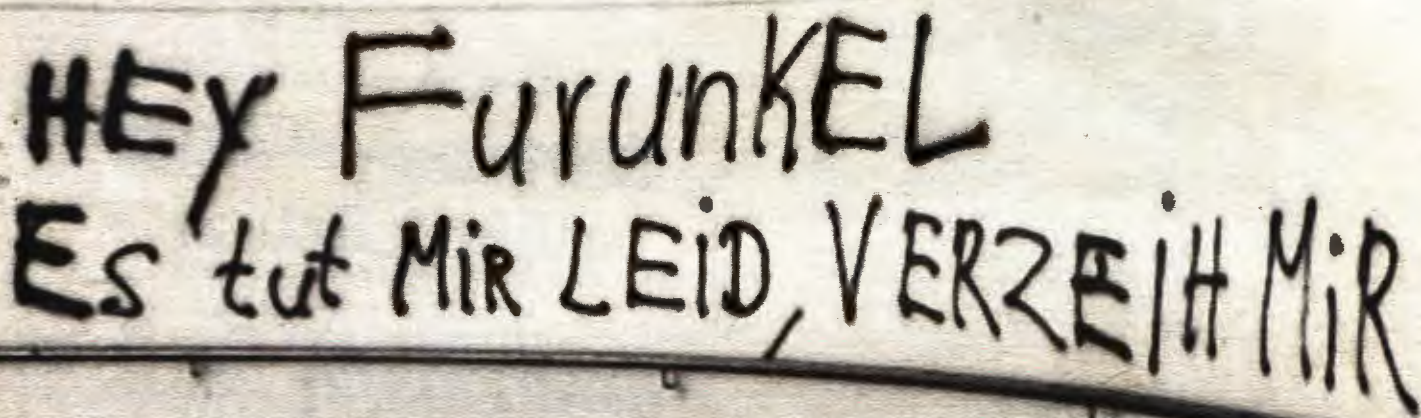 HEY FurunKEL
Es tut MiR LEiD, VERZEiH MiR